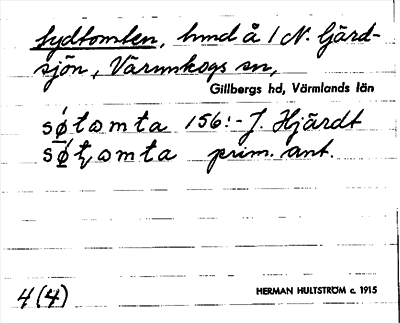 Sydtomten, hmd å i N. Gärd-
sjön, Värmskogs sn,
Gillbergs hd, Värmlands län
sǿtomta 156:- J. Hjärdt
sǿtomta prim. ant.
4(4) HERMAN HULTSTRÖM c. 1915